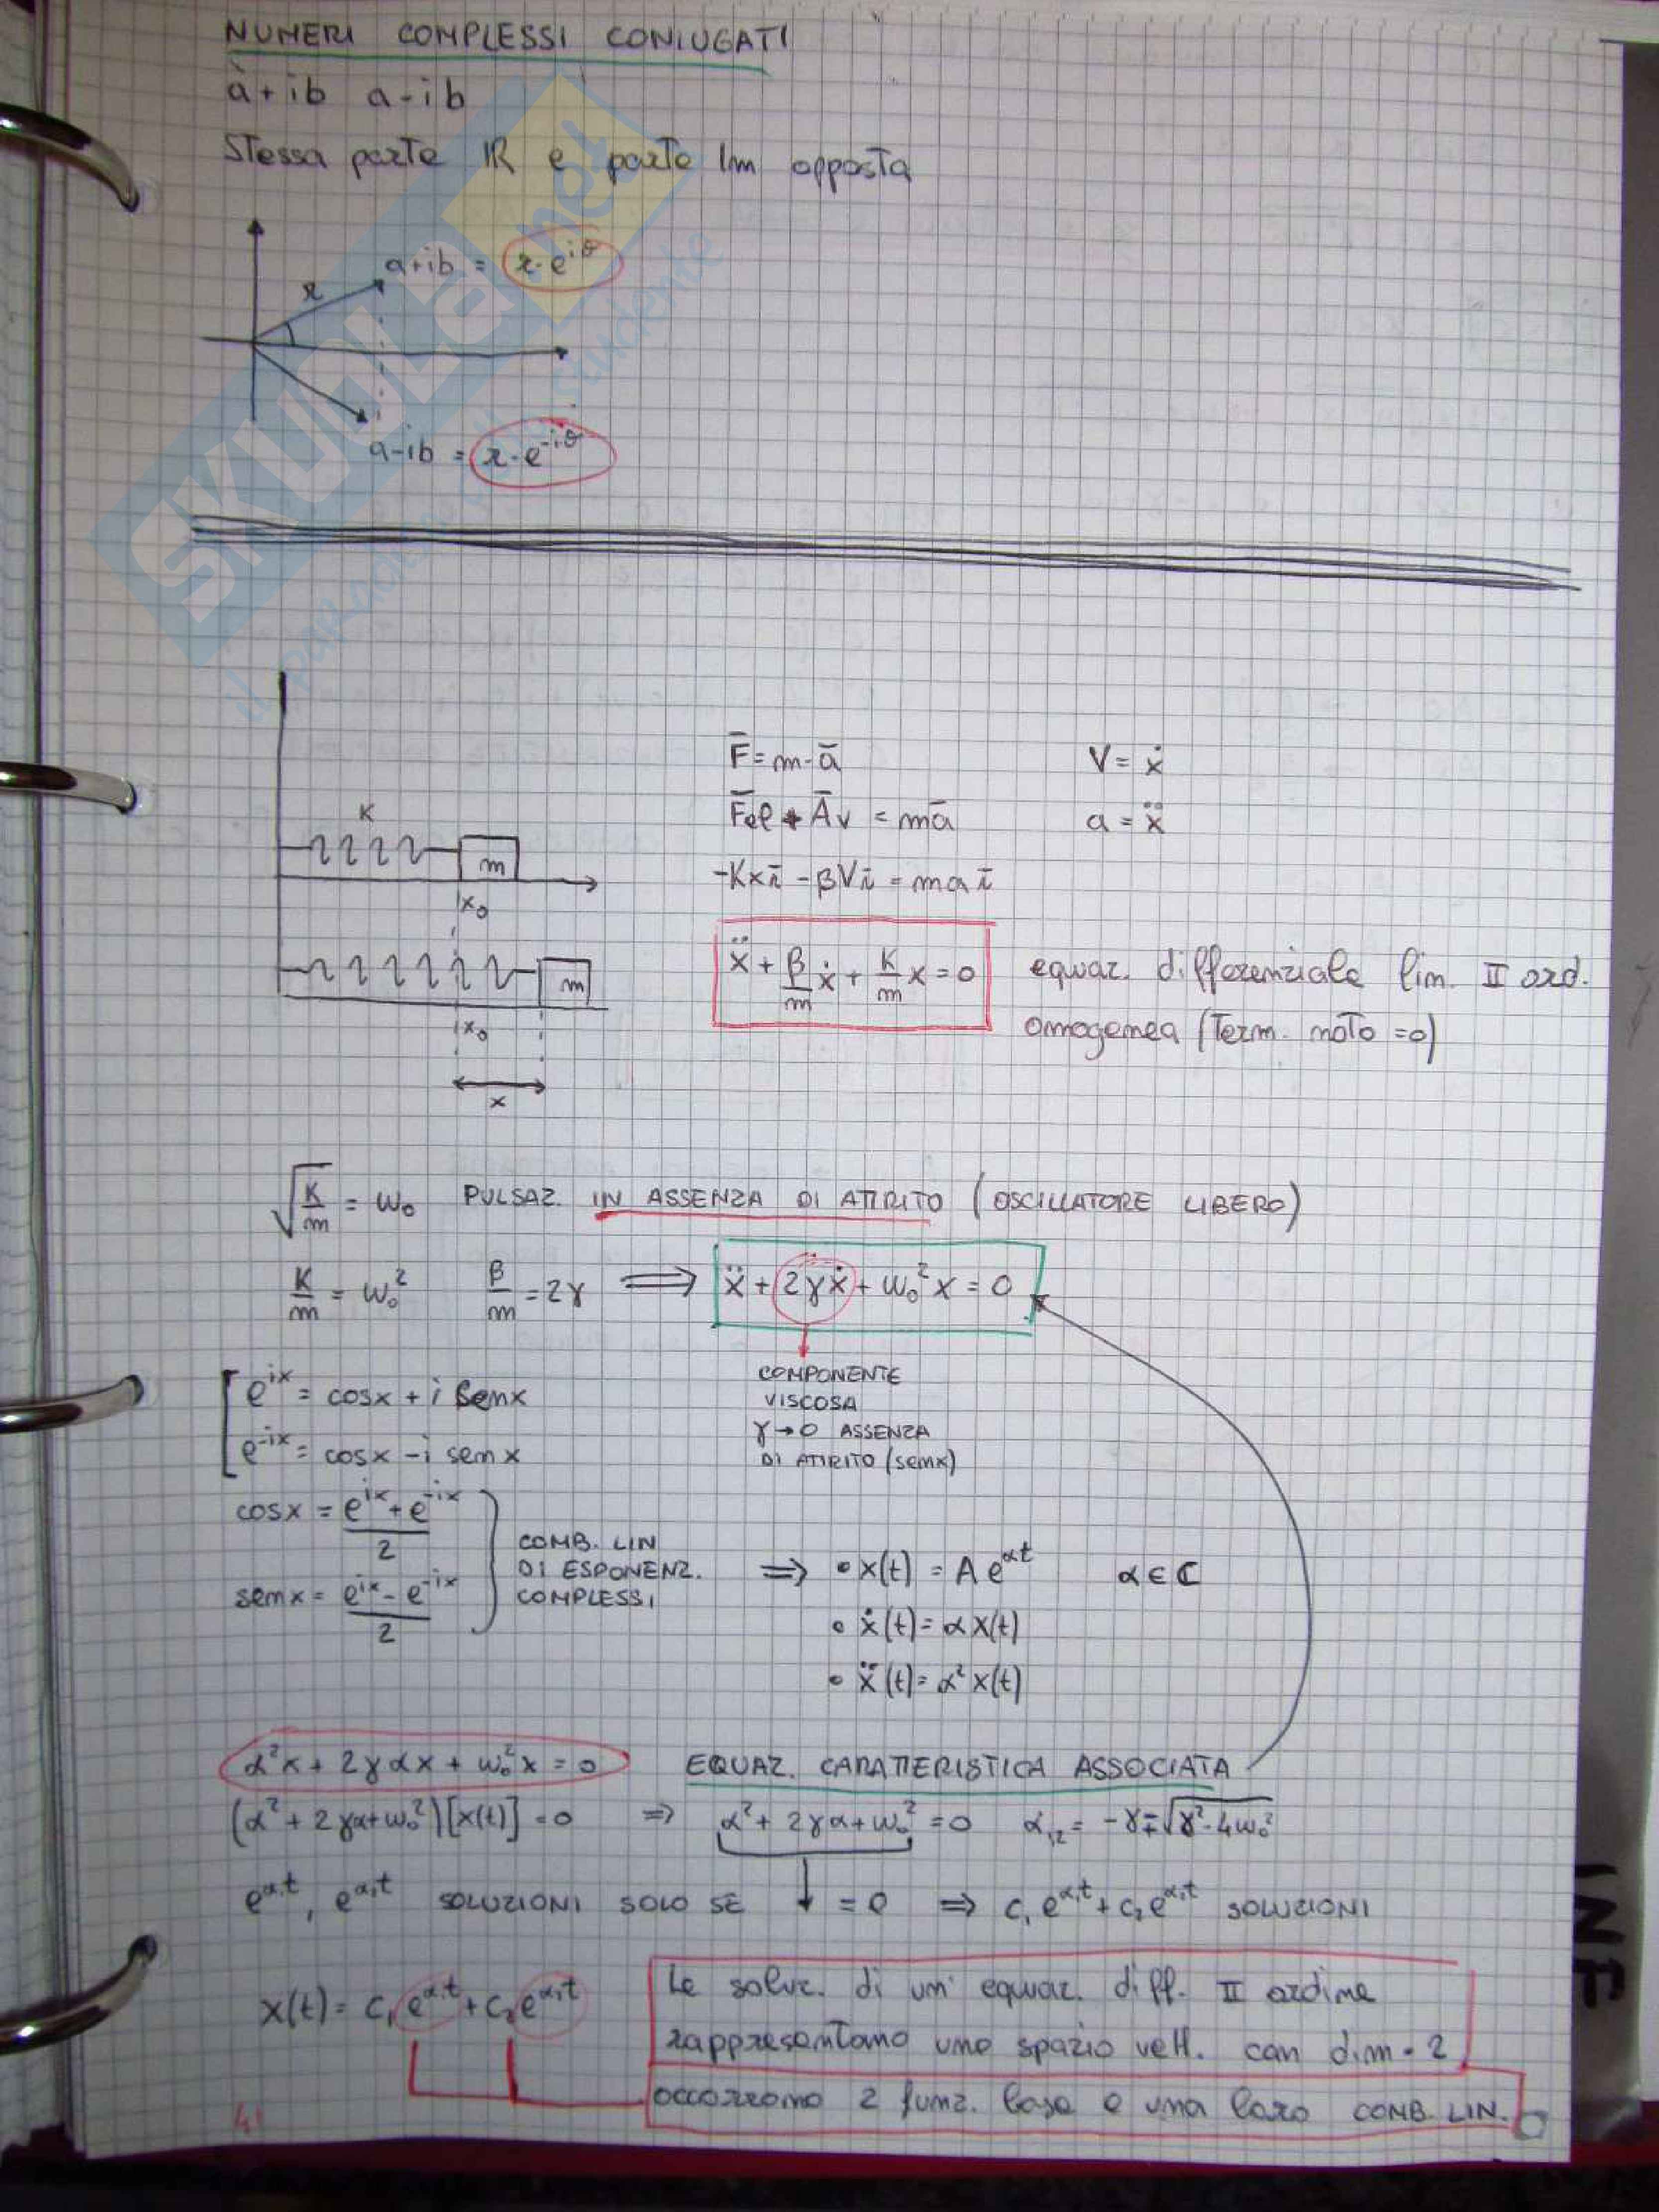 NUMERI COMPLESSI CONIUGATI
a+ib a-ib
Stessa parte IR e parte Im opposta
a+ib = r·e^iθ
r
a-ib = r·e^-iθ
SKUOLA.net
il paradiso dello studente
F̄ = m·ā
V = ẋ
F̄el + Āv = mā
a = ẍ
K
m
-Kxī - βVī = maī
x₀
ẍ + β/m ẋ + K/m x = 0 equaz. differenziale lin. II ord.
omogenea (Term. noto = 0)
m
x₀
x
√(K/m) = ω₀ PULSAZ. IN ASSENZA DI ATTRITO (OSCILLATORE LIBERO)
K/m = ω₀² β/m = 2γ ⟹ ẍ + 2γẋ + ω₀²x = 0
COMPONENTE
VISCOSA
γ→0 ASSENZA
DI ATTRITO (senx)
e^ix = cosx + i senx
e^-ix = cosx - i senx
cosx = (e^ix + e^-ix)/2
senx = (e^ix - e^-ix)/2
COMB. LIN
DI ESPONENZ.
COMPLESSI
⟹ • x(t) = A e^αt α ∈ C
• ẋ(t) = α x(t)
• ẍ(t) = α² x(t)
α²x + 2γαx + ω₀²x = 0 EQUAZ. CARATTERISTICA ASSOCIATA
(α² + 2γα + ω₀²)[x(t)] = 0 ⟹ α² + 2γα + ω₀² = 0 α₁,₂ = -γ ∓ √(γ² - 4ω₀²)
e^α₁t, e^α₂t SOLUZIONI SOLO SE ↓ = 0 ⟹ c₁e^α₁t + c₂e^α₂t SOLUZIONI
x(t) = c₁e^α₁t + c₂e^α₂t
Le soluz. di un' equaz. diff. II ordine
rappresentano uno spazio vett. con dim = 2
occorrono 2 funz. base e una loro COMB. LIN.
INE